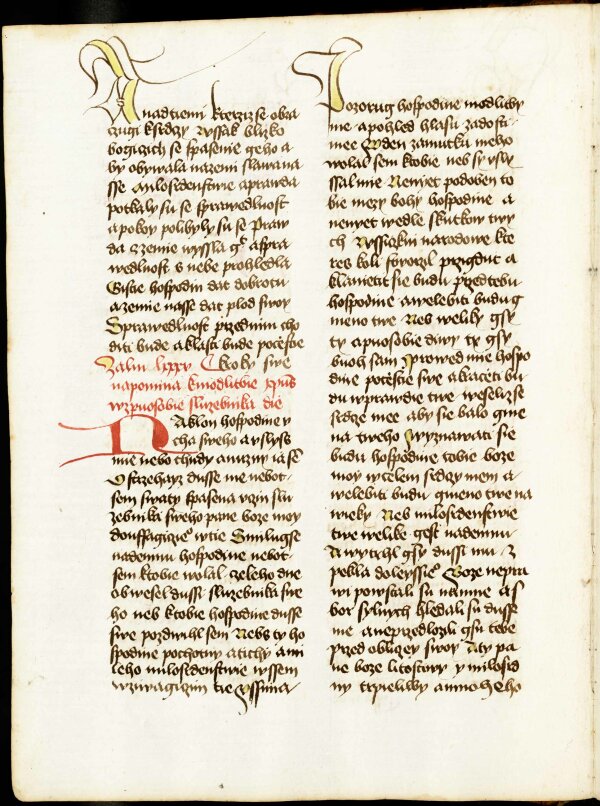 A nadtiemi kterzizse obra
czugi ksrdczy Wssak blizko
bogiczich se spasenie geho a
by obywala nazemi slawa na
sse Milosrdenstwie aprawda
potkaly su se sprawedlnost
apokoy polibyly su se Praw
da zzemie wyssla gt aspra
wedlnost s nebe prohledla
Gistie hospodin dat dobrotu
azemie nasse dat plod swoy
Sprawedlnost przednim cho
diti bude aklasti bude potestie
Zalm lxxxv Ckoky swe
napomina kmodlitbie
wzpuosobie sluzebnika die
Naklon hospodine v
cha sweho avslyss
mie nebo chudy anuzny ia se
Ostrzehayz dusse me nebot
sem swaty spasena vczin slu
zebnika sweho pane boze moy
douffagiczie w tie Smilugse
nademnu hospodine nebot
sem ktobie wolal zeleho dne
obwesel dussi sluzebnika swe
ho neb ktobie hospodine dusse
swe pozdwihl sem Nebs ty ho
spodine pochotny atichy ami
leho milosrdenstwie wssem
wzywagiczim tie Vssima
Pozorug hospodine modlitby
me apohled hlasu zadosti
mee W den zamutku meho
wolal sem ktobie neb sy vsly
ssal mie Nenyet podoben to
bie mezy bohy hospodine a
nenyet wedle skutkow twy
ch Wssiczkni narodowe kte
rez koli stworzil przigdut a
klanieti sie budu przedtebu
hospodine awelebiti budu g
meno twe Nebs weliky gsy
ty apuosobie diwy ty gsy
buoh sam Prowed mie hospo
dine potestie swe akraceti bu
du wprawdie twe weselizse
srdcze mee aby sie balo gme
na tweho Wyznawati sie
budu hospodine tobie boze
moy wczelem srdczy mem a
welebiti budu gmeno twe na
wieky Neb milosrdenstwie
twe welike gest nademnu
Awytrhl gsy dussi mu z
pekla doleyssie Boze nepra
wi powstali su namne a s
bor sylnych hledali su dusse
me aneprzedlozili gsu tebe
przed obliczey swoy Aty pa
ne boze litostiwy y milosrd
ny trpieliwy amnoheho